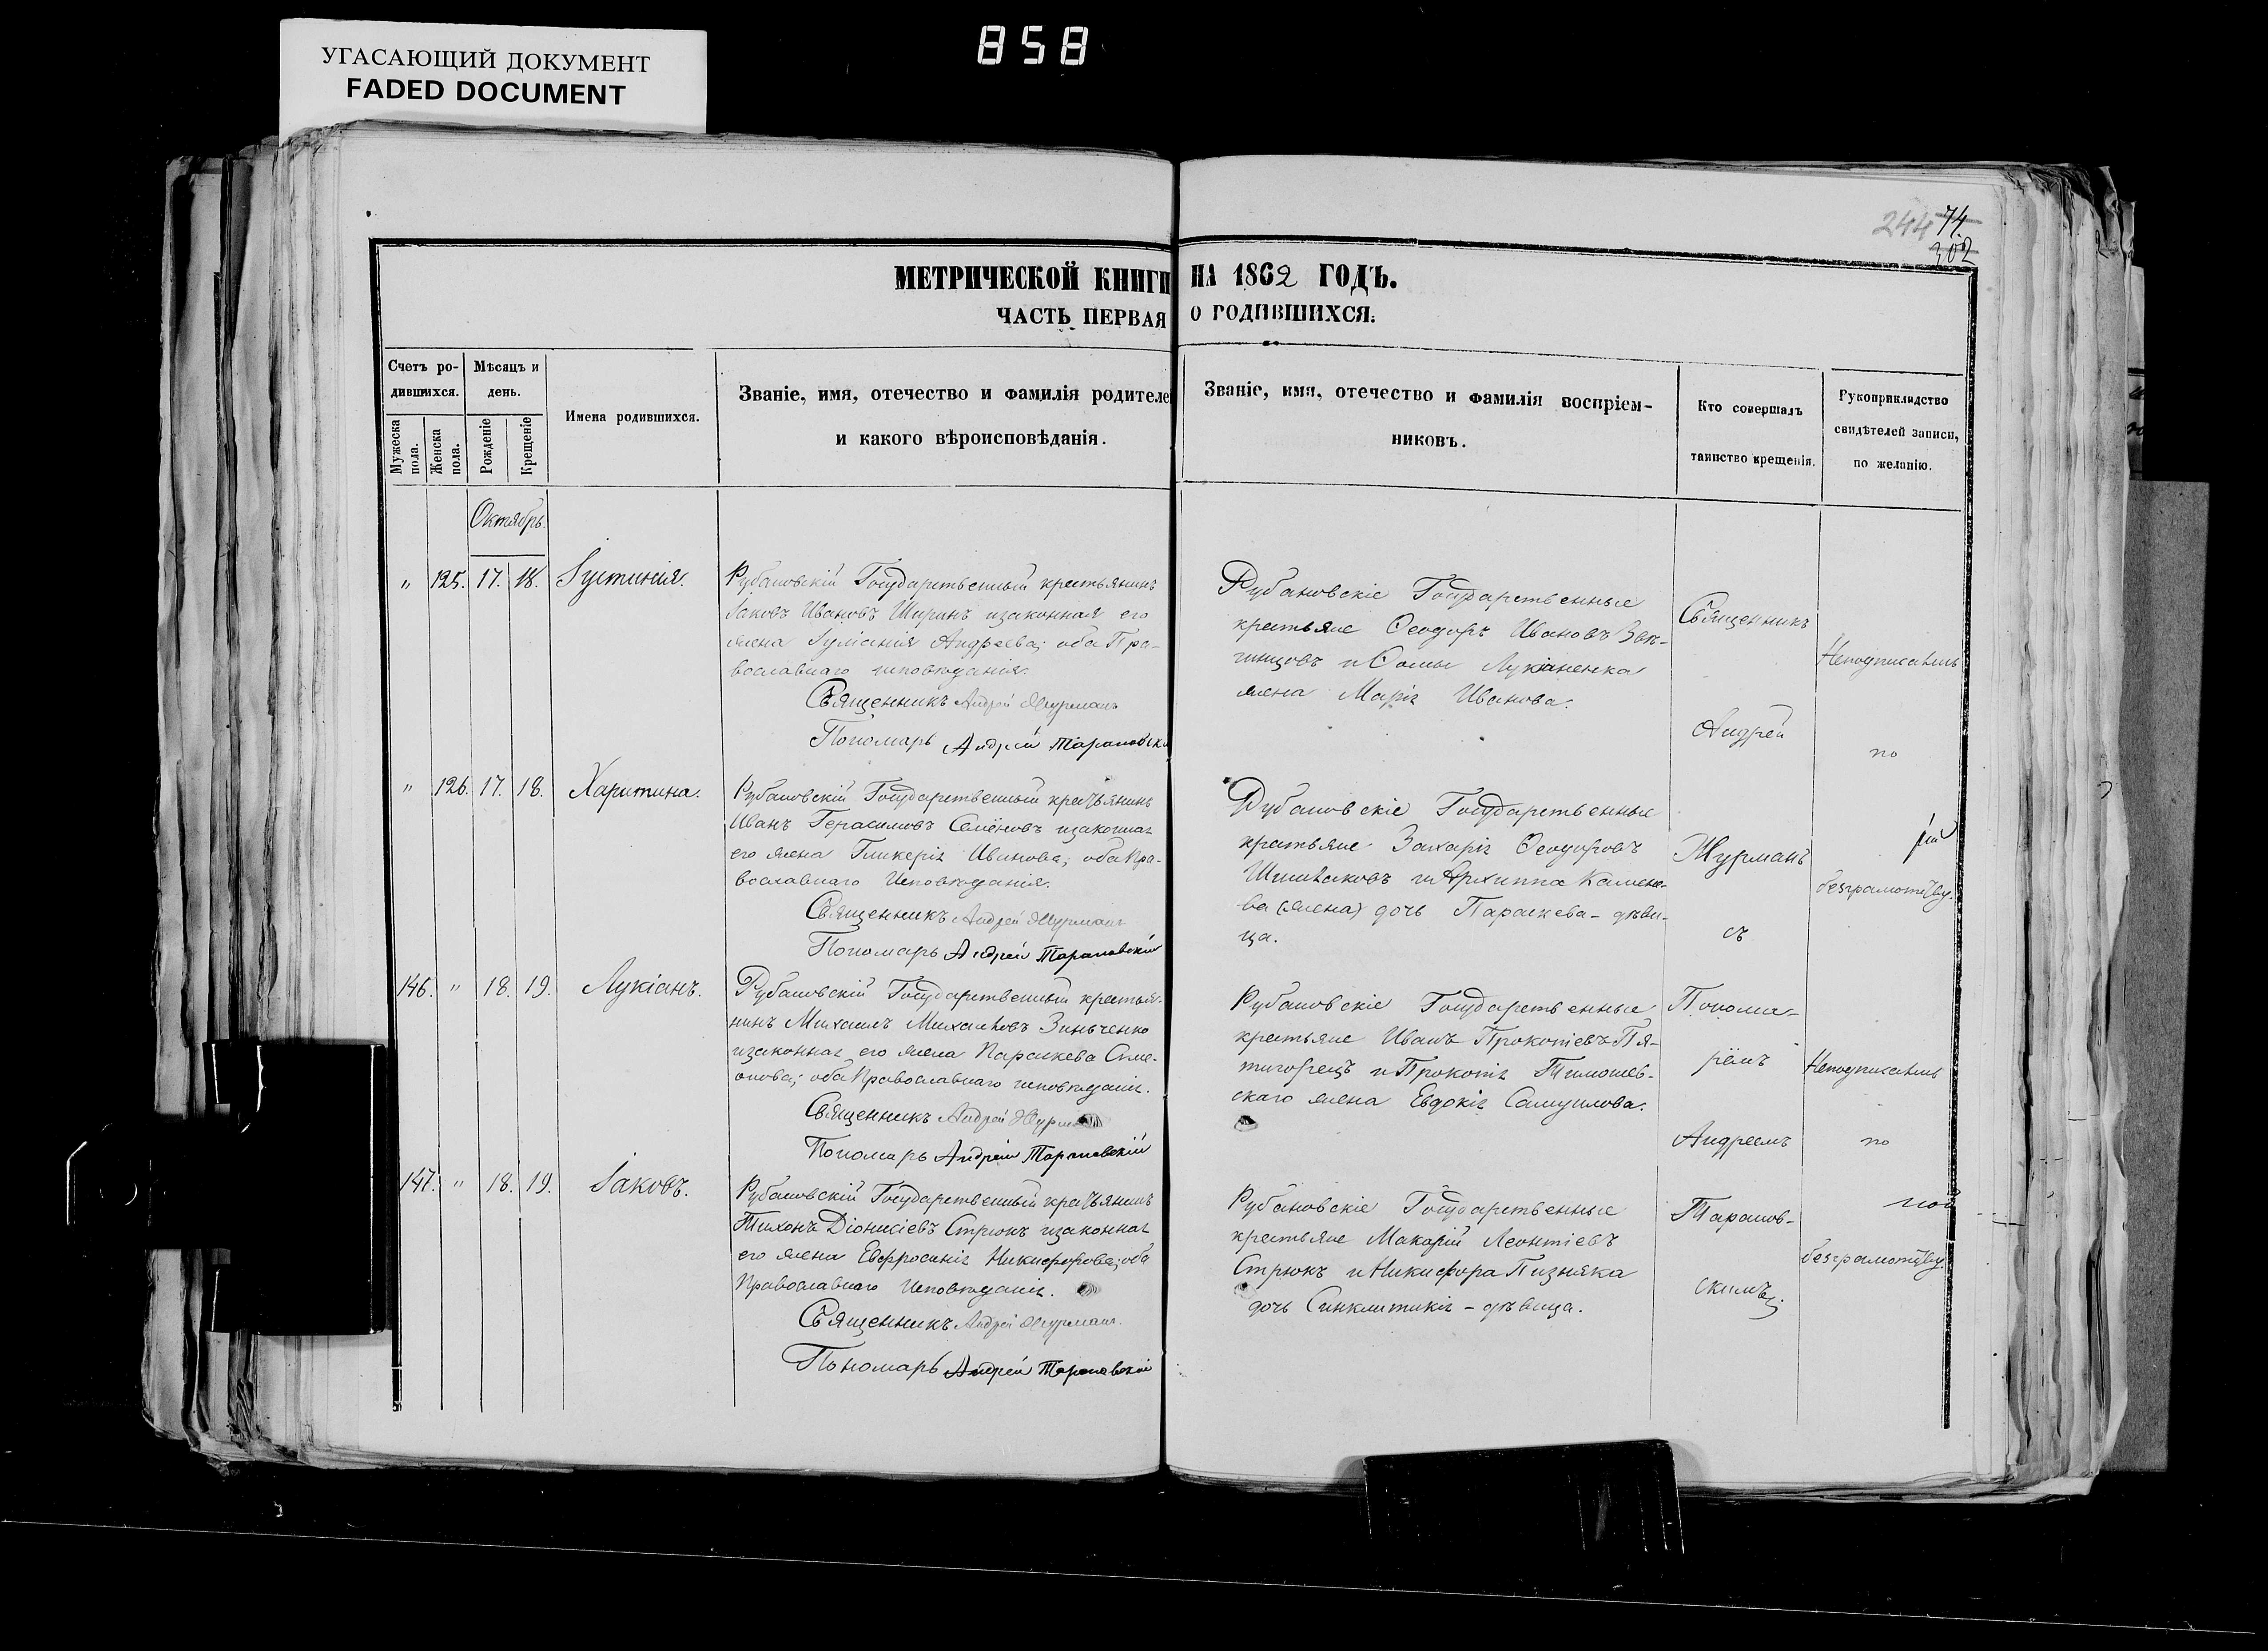 УГАСАЮЩИЙ ДОКУМЕНТ
FADED DOCUMENT
858
244 74.
302
МЕТРИЧЕСКОЙ КНИГИ НА 1862 ГОДЪ.
ЧАСТЬ ПЕРВАЯ О РОДИВШИХСЯ.
Счетъ ро-
дившихся.
Мужеска пола.
Женска пола.
Мѣсяцъ и
день.
Рожденіе
Крещеніе
Имена родившихся.
Званіе, имя, отечество и фамилія родителе
и какого вѣроисповѣданія.
Званіе, имя, отечество и фамилія воспріем-
никовъ.
Кто совершалъ
таинство крещенія.
Рукоприкладство
свидѣтелей записи,
по желанію.
Октябрь.
" 125. 17. 18. Іустинія.
Рубановскій Государственный крестьянинъ
Іаковъ Ивановъ Ширинъ изаконная его
жена Іуліанія Андреева; оба Пра-
вославнаго исповѣданія.
Священникъ Андрей Журманъ
Пономарь Андрей Тарановски
Рубановскіе Государственные
крестьяне Ѳеодоръ Ивановъ Звя-
гинцовъ и Ѳомы Лукіаненка
жена Марія Иванова.
" 126. 17. 18. Харитина.
Рубановскій Государственный крестьянинъ
Иванъ Герасимовъ Семёновъ изаконная
его жена Гликерія Иванова; оба Пра-
вославнаго Исповѣданія.
Священникъ Андрей Журманъ
Пономарь Андрей Тарановскій
Рубановскіе Государственные
крестьяне Захарія Ѳеодоровъ
и Архиппа Камене-
ва (жена) дочь Параскева - дѣви-
ца.
146. " 18. 19. Лукіанъ.
Рубановскій Государственный крестья-
нинъ Михаилъ Михайловъ Зинченко
изаконная его жена Параскева Симе-
онова; оба Православнаго исповѣданія.
Священникъ Андрей Журманъ
Пономарь Андрей Тарановскій
Рубановскіе Государственные
крестьяне Иванъ Прокопіевъ Пя-
тигорецъ и Прокопія Тимошев-
скаго жена Евдокія Самуилова.
147. " 18. 19. Іаковъ.
Рубановскій Государственный крестьянинъ
Тихонъ Діонисіевъ Стрюкъ изаконная
его жена Евфросинія Никифорова; оба
Православнаго Исповѣданія.
Священникъ Андрей Журманъ.
Пономарь Андрей Тарановскій
Рубановскіе Государственные
крестьяне Макарій Леонтіевъ
Стрюкъ и Никифора Пизняка
дочь Синклитикія - дѣвица.
Священникъ
Андрей
Журманъ
съ
Понома-
рёмъ
Андреемъ
Таранов-
скимъ.
Неподписались
по
безграмотству.
Неподписались
по
безграмотству.